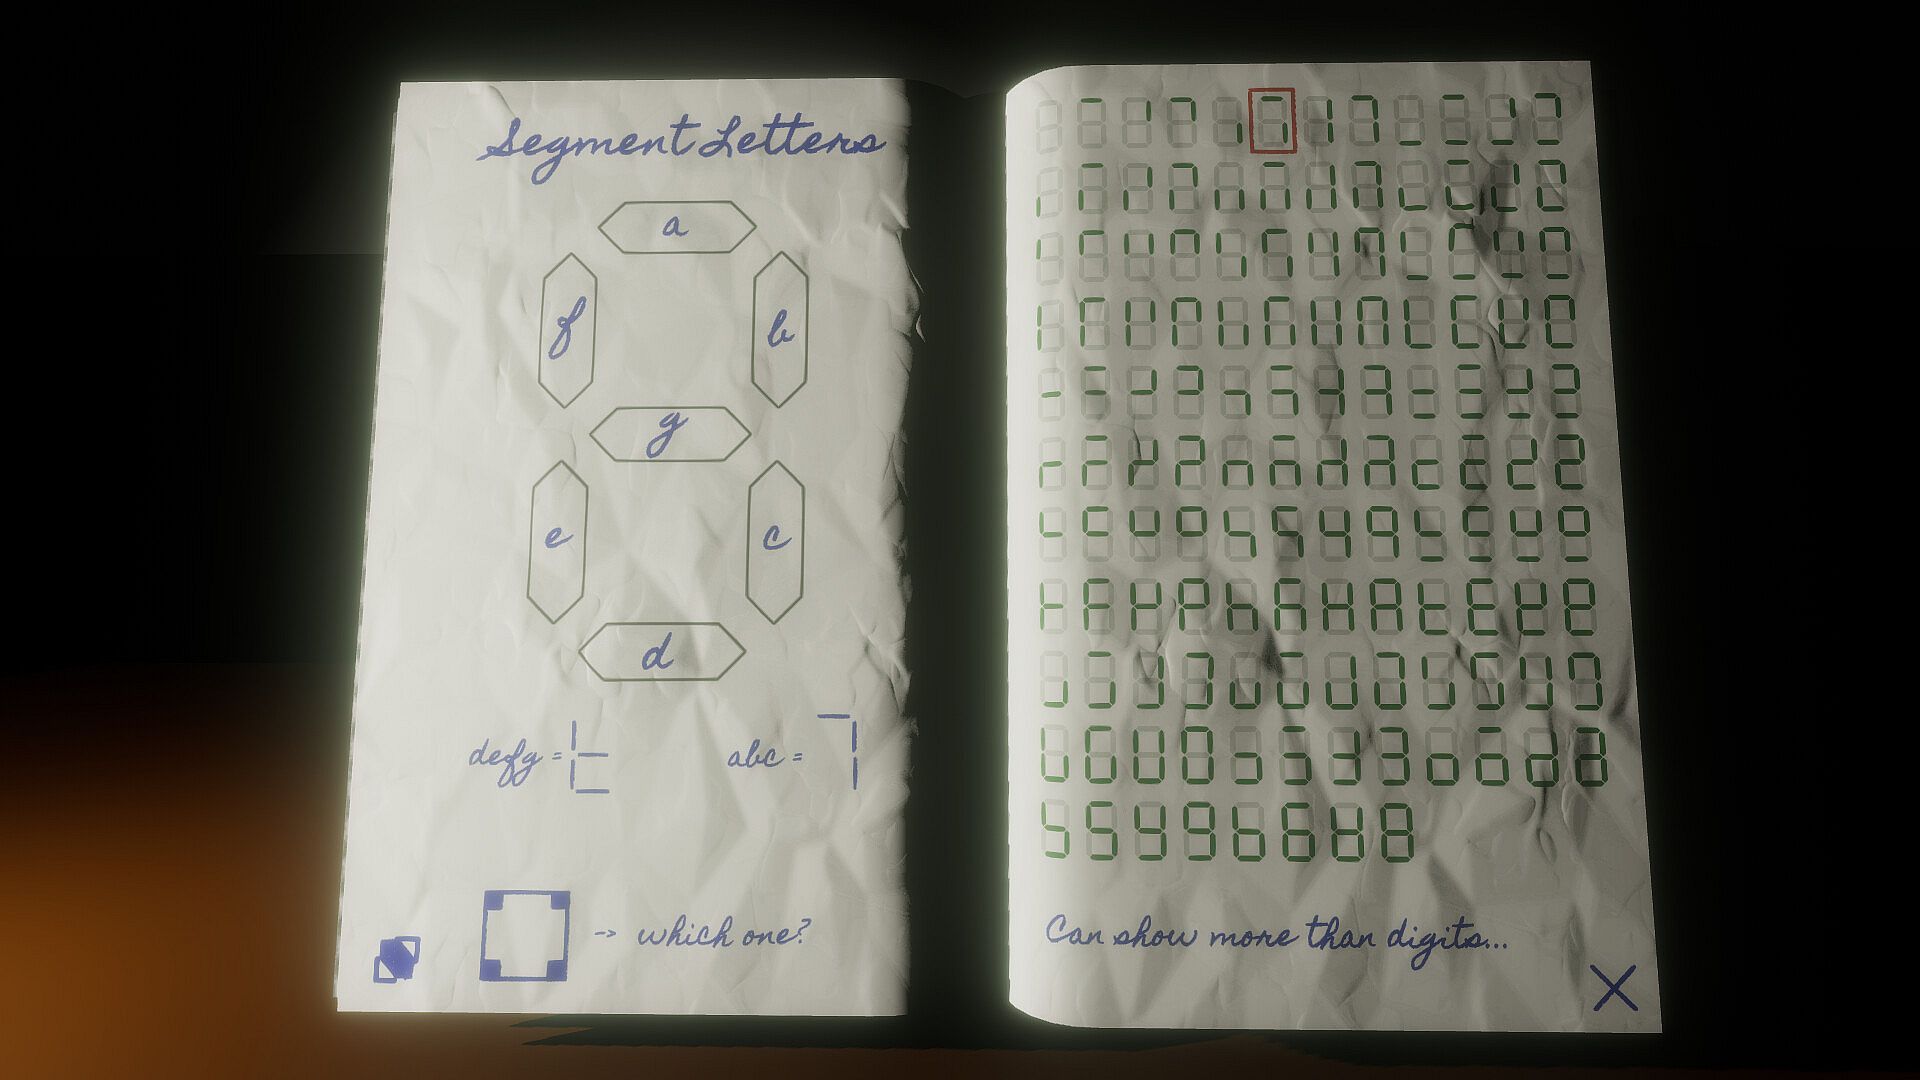 Segment Letters
a
f
b
g
e
c
d
defg =
abc =
-> which one?
Can show more than digits...